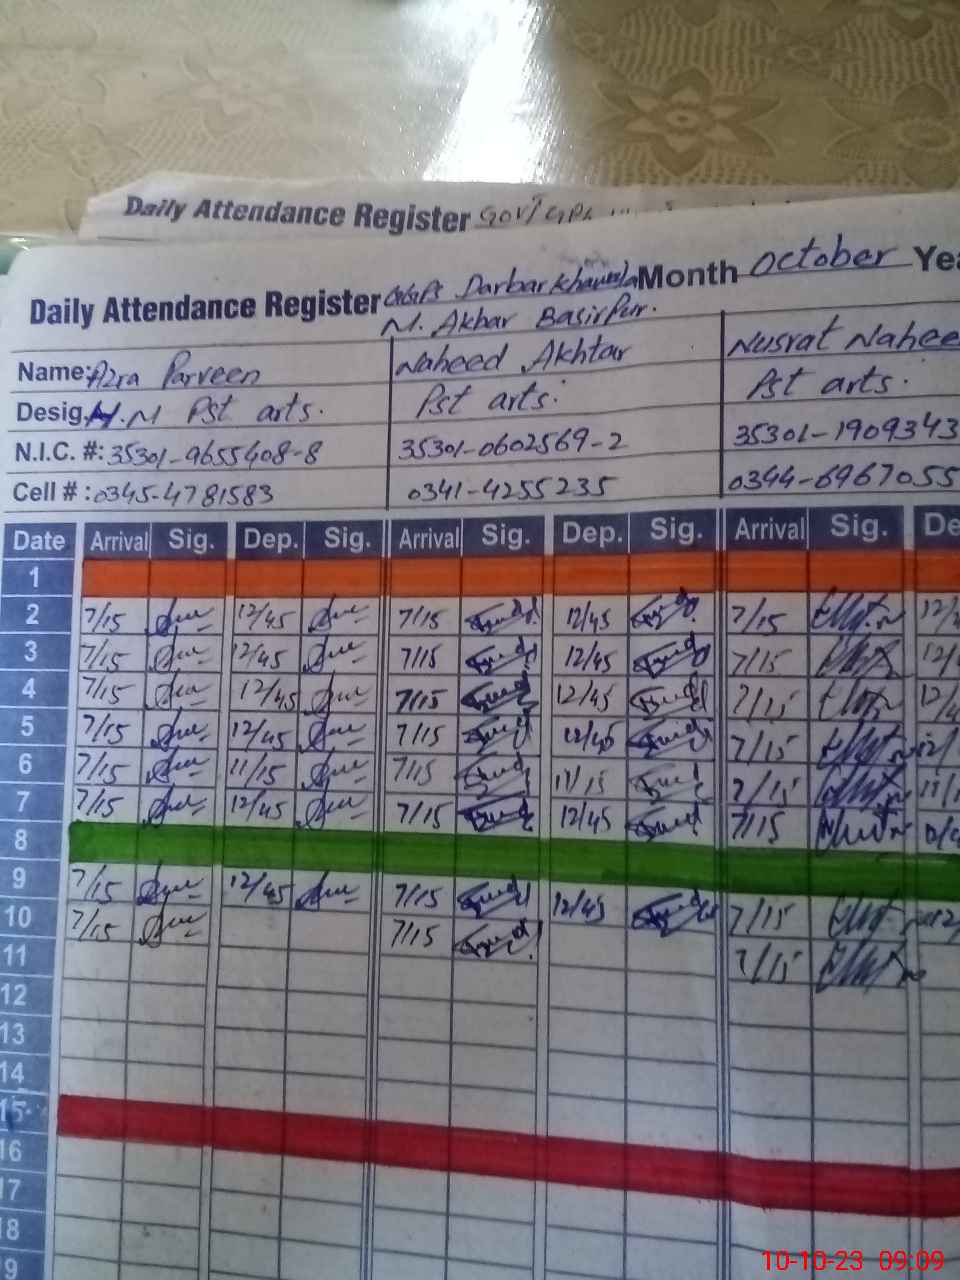 Daily Attendance Register Gov't
Daily Attendance Register GGPS Darbar Month October Yea
M. Akbar Basirpur.
Name: Azra Parveen Naheed Akhtar Nusrat Nahee
Desig. H.M Pst arts. Pst arts. Pst arts.
N.I.C. #: 35301-9655408-8 35301-0602569-2 35301-1909343
Cell #: 0345-4781583 0341-4255235 0344-6967055
Date Arrival Sig. Dep. Sig. Arrival Sig. Dep. Sig. Arrival Sig. De
1
2 7/15 12/45 7/15 12/45 7/15 12/
3 7/15 12/45 7/15 12/45 7/15 12/
4 7/15 12/45 7/15 12/45 7/15 12/4
5 7/15 12/45 7/15 12/45 7/15 12/
6 7/15 11/15 7/15 11/15 7/15 11/1
7 7/15 12/45 7/15 12/45 7/15
8
9 7/15 12/45 7/15 12/45 7/15 12/
10 7/15 7/15 7/15
11
12
13
14
15
16
17
18
9
10-10-23 09:09